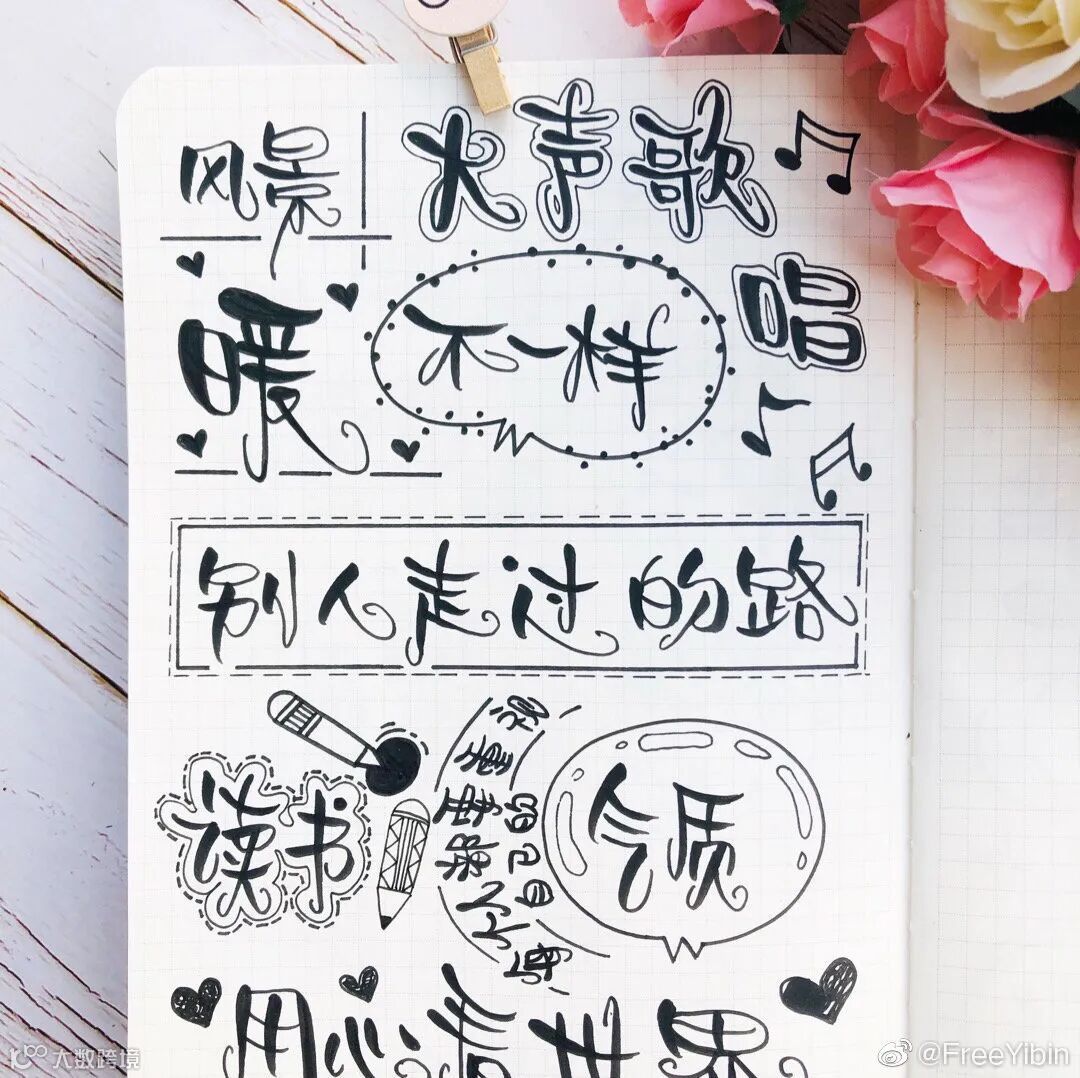 风景
大声歌唱
暖
不一样
别人走过的路
读书
自己的
气质
用心看世界
大数跨境
@FreeYibin